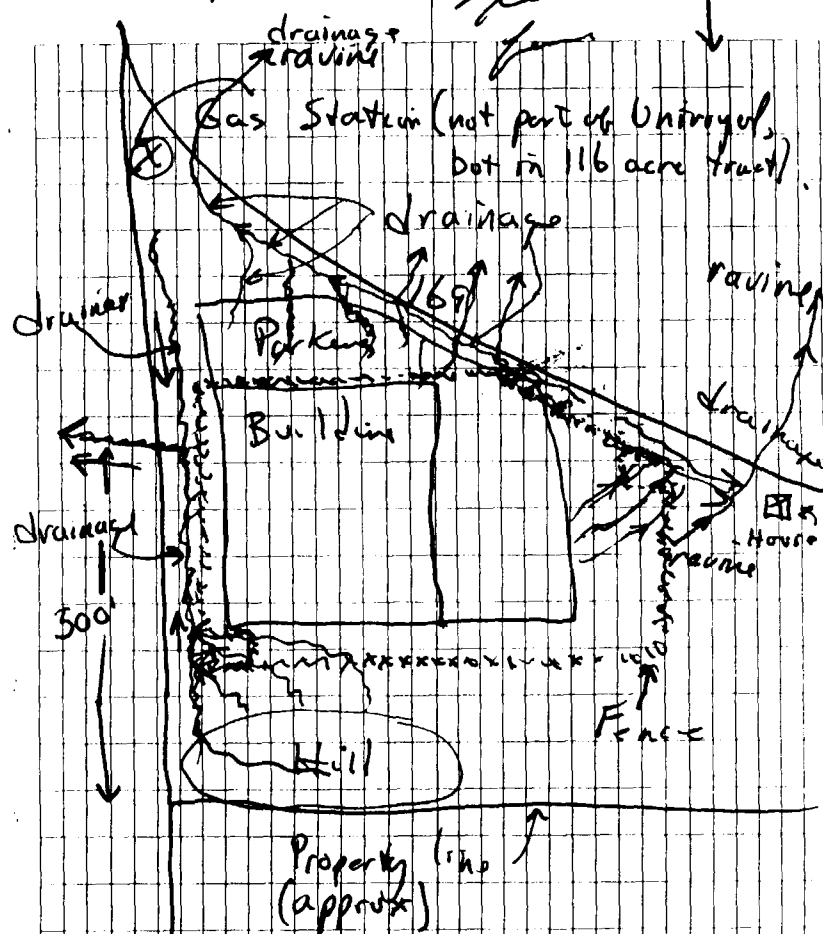 drainage +
ravine
Gas Station (not part of Uniroyal,
but in 116 acre tract)
drainage
ravine
169
drainage
Parking
Building
drainage
drainage
House
ravine
300'
Fence
Hill
Property line
(approx)